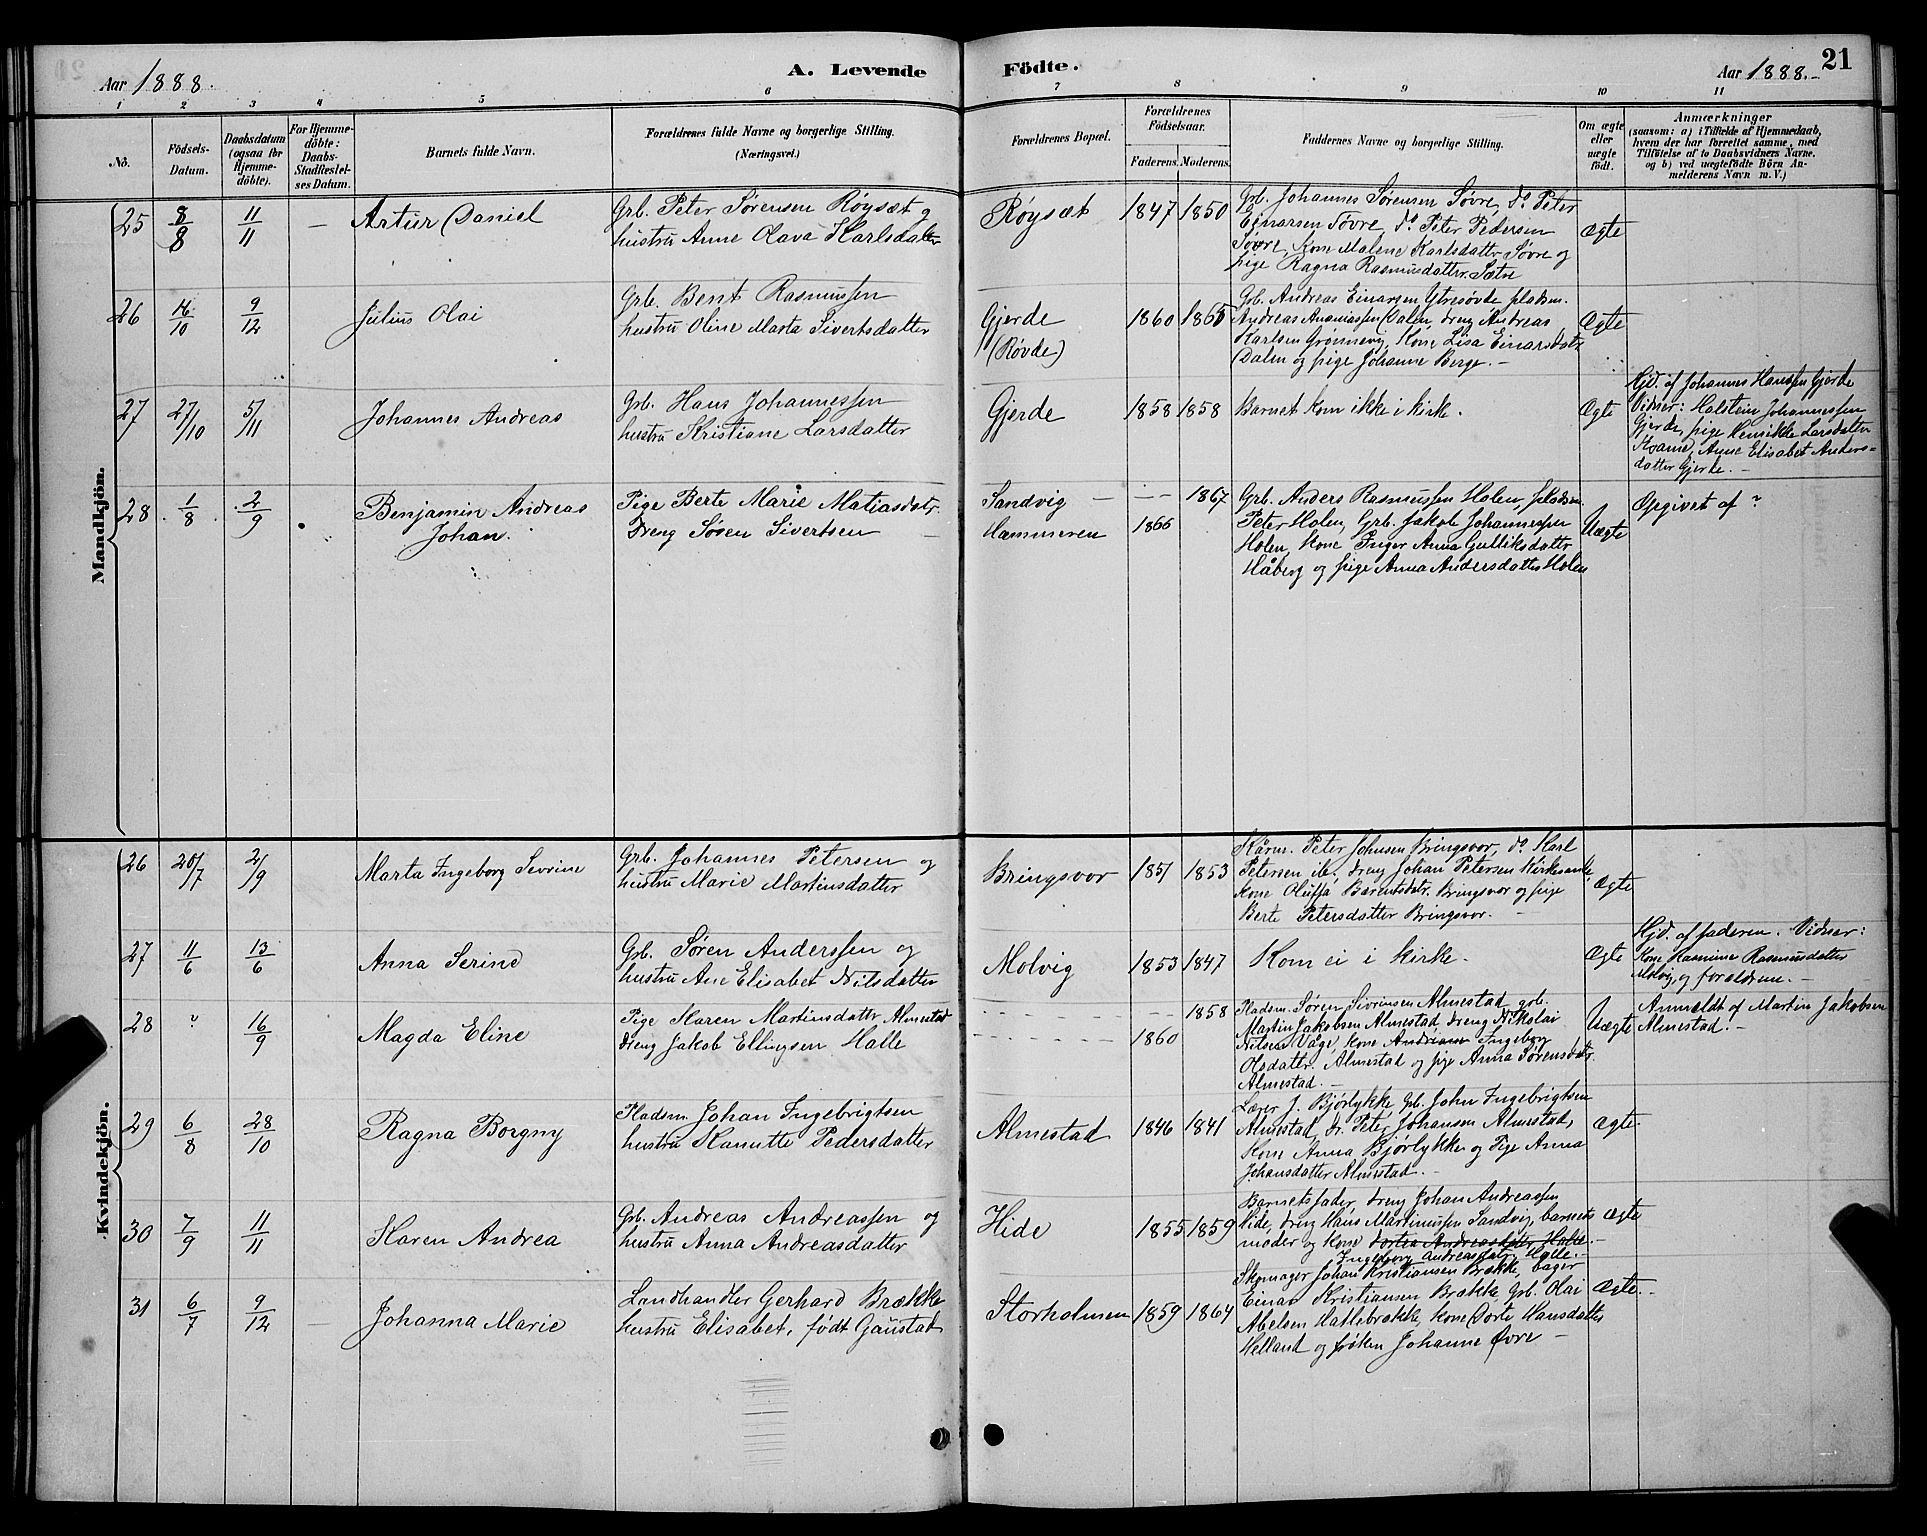 Aar 1888.
A. Levende
Födte.
Aar 1888.
21
1 2 3 4 5 6 7 8 9 10 11
No.
Födsels-
Datum.
Daabsdatum
(ogsaa for
Hjemme-
döbte).
For Hjemme-
döbte:
Daabs-
Stadfæstel-
ses Datum.
Barnets fulde Navn.
Forældrenes fulde Navne og borgerlige Stilling.
(Næringsvei.)
Forældrenes Bopæl.
Forældrenes
Födselsaar.
Faderens. Moderens.
Faddernes Navne og borgerlige Stilling.
Om ægte
eller
uægte
født.
Anmærkninger
(saasom: a) i Tilfælde af Hjemmedaab,
hvem der har forrettet samme, med
Tilföielse af to Daabsvidners Navne,
og b) ved uægtefödte Börn An-
melderens Navn m. V.)
Mandkjön.
25
8/8
11/11
Artur Daniel
Grb. Peter Sørensen Røysæt og
hustru Anne Olava Karlsdatter
Røysæt
1847 1850
Grb. Johannes Sørensen Søvre, do Peter
Einarsen Søvre, do Peter Pedersen
Søvre, kone Malene Karlsdatter Søvre og
pige Ragna Rasmusdatter Sætre
Ægte
26
16/10
9/12
Julius Olai
Grb. Bent Rasmussen
hustru Oline Marta Sivertsdatter
Gjerde
(Røvde)
1860 1865
Grb. Andreas Einarsen Ytresøvde pladsm.
Andreas Ananiassen Dalen, dreng Andreas
Karlsen Grønnevig, Kone Lisa Einarsdatr
Dalen og pige Johanne Berge. -
Ægte
27
27/10
5/11
Johannes Andreas
Grb. Hans Johannessen
hustru Kristiane Larsdatter
Gjerde
1858 1858
Barnet kom ikke i kirke.
Ægte
Hjd. af Johannes Hanssen Gjerde
Vidner: Halstein Johannessen
Gjerde, pige Henrikke Larsdatter
Kvame, Anne Elisabet Anders-
datter Gjerde. -
28
1/8
2/9
Benjamin Andreas
Johan.
Pige Berte Marie Matiasdatr.
Dreng Søren Sivertsen
Sandvig
Hammeren
1867
1866
Grb. Anders Rasmussen Holen, pladsm
Peter Holen, Grb. Jakob Johannessen
Holen, kone Inger Anna Gulliksdatter
Håberg og pige Anna Andersdatter Holen
Uægte
Opgivet af ?
Kvindekjön.
26
20/7
2/9
Marta Ingeborg Sevrine
Grb. Johannes Petersen og
hustru Marie Martinsdatter
Bringsvor
1851 1853
Kårm. Peter Johnsen Bringsvor, do Karl
Petersen ib., dreng Johan Petersen
kone Oluffa Barentsdatr. Bringsvor og pige
Berte Petersdatter Bringsvor. -
Ægte
27
11/6
13/6
Anna Serine
Grb. Søren Anderssen og
hustru Ane Elisabet Nilsdatter
Molvig
1853 1847
Kom ei i kirke.
Ægte
Hjd. af faderen. Vidner:
Kone Rasmine Rasmusdatter
Molvig, og forældrene. -
28
?
16/9
Magda Eline
Pige Karen Martinsdattr Almestad
Dreng Jakob Ellingsen Halle
1858
1860
Pladsm. Søren Sivrinsen Almestad, grb.
Martin Jakobsen Almestad, dreng Nikolai
Nilsen Våge, kone Ingeborg
Olsdatter. Almestad og pige Anna Sørensdatr.
Almestad. -
Uægte
Anmeldt af Martin Jakobsen
Almestad. -
29
6/8
28/10
Ragna Borgny
Pladsm. Johan Ingebrigtsen
hustru Hanutte Pedersdatter
Almestad
1846 1841
Lærer J. Bjørlykke, grb. John Ingebrigtsen
Almestad, dr. Peter Johansen Almestad,
Kone Anna Bjørlykke og Pige Anna
Johansdatter Almestad. -
Ægte.
30
7/9
11/11
Karen Andrea
Grb. Andreas Andreassen og
hustru Anna Andreasdatter
Hide
1855 1859
Barnets fader, dreng Johan Andreassen
Hide, dreng Hans Martinussen Sandvig, barnets
moder og kone Dortea Andreasdatter Halle. -
Ingeborg Andreasdatr. Halle. -
Ægte
31
6/7
9/12
Johanna Marie
Landhandler Gerhard Brække
hustru Elisabet, født Gaustad
Storholmen
1859 1864
Skomager Johan Kristiansen Brække, bager
Einar Kristiansen Brække, grb. Olai
Abelsen Hatlebrække, kone Dorte Hansdatter
Helland og frøken Johanne Øvre -
Ægte. -